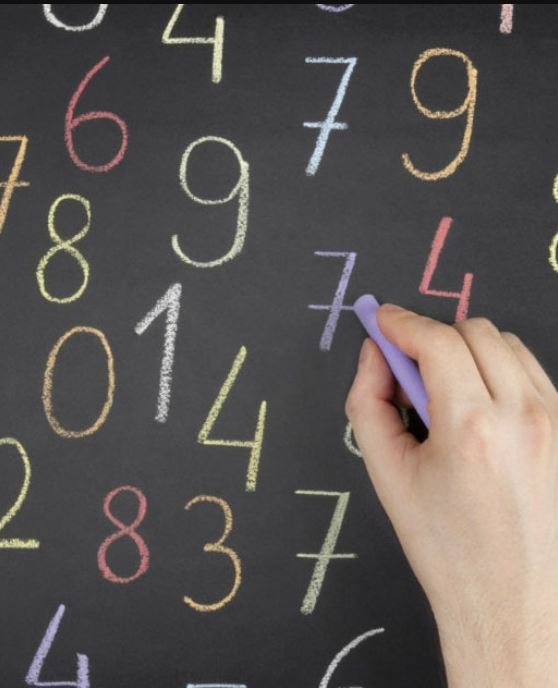 4
6 7 9
7 9
8 7 4
1
0 4
2 8 3 7
4